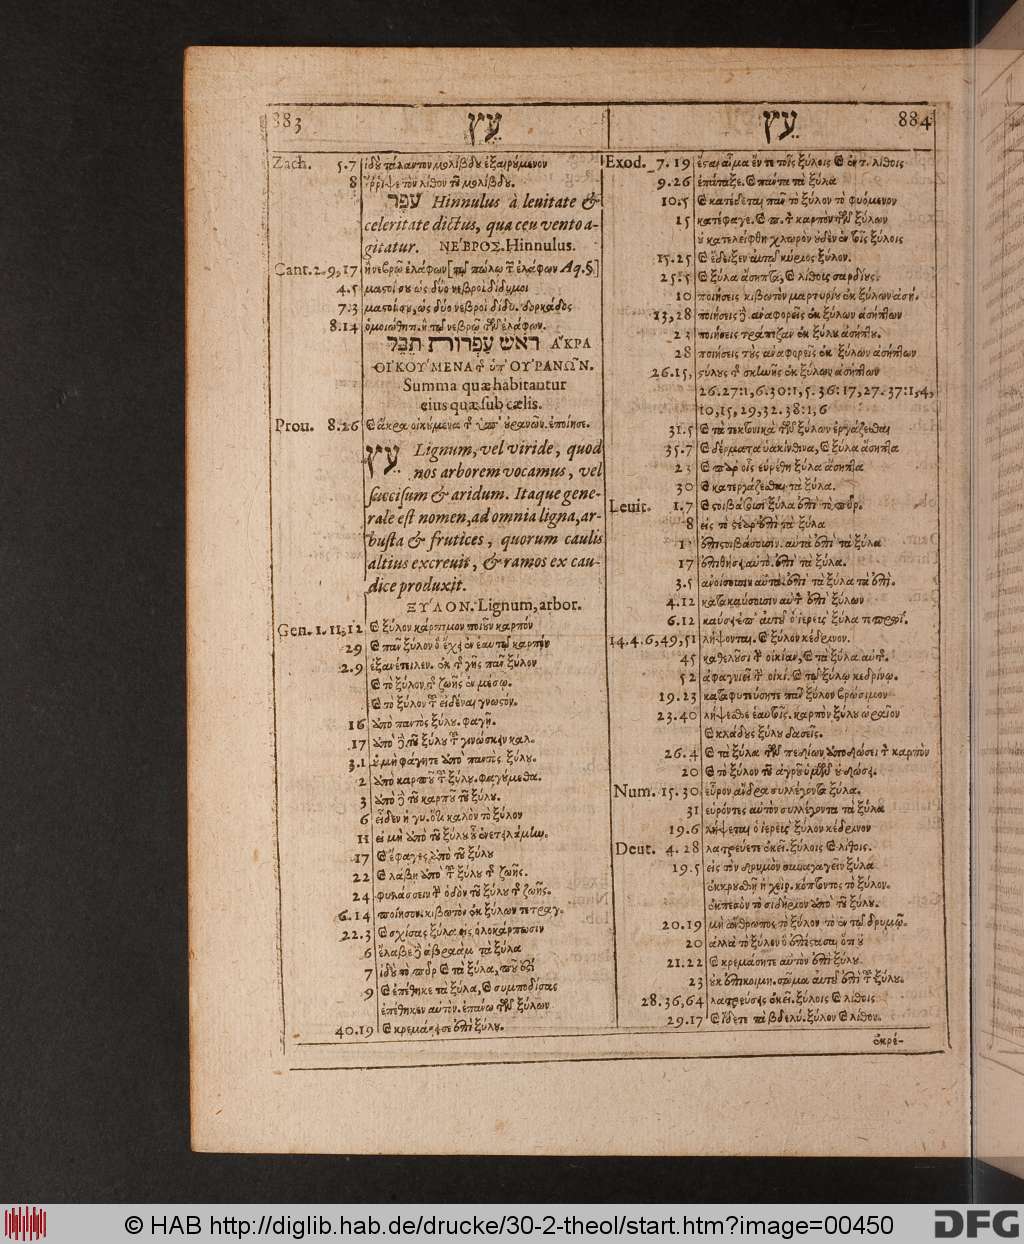 883 עֵץ
Zach. 5.7 ἰδοὺ τάλαντον μολίβδου ἐξαιρόμενον
8 ἔρριψε τὸν λίθον τοῦ μολίβδου.
עֹפֶר Hinnulus à leuitate &
celeritate dictus, qua ceu vento a-
gitatur. ΝΕΒΡΟ'Σ. Hinnulus.
Cant. 2.9,17 ἢ νεβρῷ ἐλάφων [τῷ πώλῳ τῶ ἐλάφων Aq.§.]
4.5 μαστοί σου ὡς δύο νεβροὶ δίδυμοι
7.3 μαστοί σου, ὡς δύο νεβροὶ δίδυ. δορκάδος
8.14 ὁμοιώθητι ἢ τῷ νεβρῷ τῶν ἐλάφων.
ראש עפרות תבל ἌΚΡΑ
ΟΙΚΟΥΜΕΝΑ τ ὑπ ΟΥΡΑΝΩ͂Ν.
Summa quæ habitantur
eius quæ sub cælis.
Prou. 8.26 & ἄκρα οἰκούμενα τ ὑπ' οὐρανῶν. ἐποίησε.
עֵץ Lignum, vel viride, quod
nos arborem vocamus, vel
succisum & aridum. Itaque gene-
rale est nomen, ad omnia ligna, ar-
busta & frutices, quorum caulis
altius excreuit, & ramos ex cau-
dice produxit.
ΞΥ'ΛΟΝ. Lignum, arbor.
Gen. 1.11,12 & ξύλον κάρπιμον ποιοῦν καρπόν
29 & πᾶν ξύλον ὃ ἔχει ἐν ἑαυτῷ καρπόν
2.9 ἐξανέτειλεν. ἐκ τ γῆς πᾶν ξύλον
& τὸ ξύλον τ ζωῆς ἐν μέσῳ.
& τὸ ξύλον τοῦ εἰδέναι γνωστόν.
16 ἀπὸ παντὸς ξύλου. φαγῇ.
17 ἀπὸ δὲ τοῦ ξύλου τοῦ γινώσκειν καλ.
3.1 οὐ μὴ φάγητε ἀπὸ παντὸς ξύλου.
2 ἀπὸ καρποῦ τοῦ ξύλου. φαγούμεθα.
3 ἀπὸ δὲ τοῦ καρποῦ τοῦ ξύλου.
6 εἶδεν ἡ γυ. ὅτι καλὸν τὸ ξύλον
11 εἰ μὴ ἀπὸ τοῦ ξύλου οὗ ἐνετειλάμην.
17 & ἔφαγες ἀπὸ τοῦ ξύλου
22 & λάβῃ ἀπὸ τοῦ ξύλου τ ζωῆς.
24 φυλάσσειν τ ὁδὸν τοῦ ξύλου τ ζωῆς.
6.14 ποίησον. κιβωτὸν ἐκ ξύλων τετραγ.
22.3 & σχίσας ξύλα εἰς ὁλοκάρπωσιν
6 ἔλαβε δὲ ἀβραὰμ τὰ ξύλα
7 ἰδοὺ τὸ πῦρ & τὰ ξύλα, ποῦ ἐστι
9 & ἐπέθηκε τὰ ξύλα, & συμποδίσας
ἐπέθηκεν αὐτὸν. ἐπάνω τῶν ξύλων
40.19 & κρεμάσει σε ἐπὶ ξύλου.
עֵץ 884
Exod. 7.19 ἔσται αἷμα ἔν τε τοῖς ξύλοις & ἐν τ. λίθοις
9.26 ἐπάταξε. & πάντα τὰ ξύλα
10.5 & κατέδεται πᾶν τὸ ξύλον τὸ φυόμενον
15 κατέφαγε. & π. τ καρπὸν τῶν ξύλων
οὐ κατελείφθη χλωρὸν οὐδὲν ἐν τοῖς ξύλοις
15.25 & ἔδειξεν αὐτῷ κύριος ξύλον.
25.5 & ξύλα ἄσηπτα, & λίθους σαρδίους.
10 ποιήσεις κιβωτὸν μαρτυρίου ἐκ ξύλων ἀσή.
13,28 ποιήσεις δὲ ἀναφορεῖς ἐκ ξύλων ἀσήπτων
23 ποιήσεις τράπεζαν ἐκ ξύλου ἀσήπτου.
28 ποιήσεις τοὺς ἀναφορεῖς ἐκ ξύλων ἀσήπτων
26.15, στύλους τ σκηνῆς ἐκ ξύλων ἀσήπτων
26.27:1,6.30:1,5.36:17,27.37:1,4,
10,15,29,32.38:1,6
31.5 & τὰ τεκτονικὰ τῶν ξύλων ἐργάζεσθαι
35.7 & δέρματα ὑακίνθινα, & ξύλα ἄσηπτα
23 & παρ' οἷς εὑρέθη ξύλα ἄσηπτα
30 & κατεργάζεσθαι τὰ ξύλα.
Leuit. 1.7 & στοιβάσουσι ξύλα ἐπὶ τὸ πῦρ.
8 εἰς τὸ στέαρ ἐπὶ τὰ ξύλα
1 ἐπιστοιβάσουσιν. αὐτὰ ἐπὶ τὰ ξύλα
17 ἐπιθήσει αὐτὸ. ἐπὶ τὰ ξύλα.
3.5 ἀνοίσουσιν αὐτὰ. ἐπὶ τὰ ξύλα τὰ ἐπὶ.
4.12 κατακαύσουσιν αὐτ ἐπὶ ξύλων
6.12 καύσει ἐπ' αὐτοῦ ὁ ἱερεὺς ξύλα τὸ πρωΐ.
14.4.6,49,51 λήψονται. & ξύλον κέδρινον.
45 καθελοῦσι τ οἰκίαν, & τὰ ξύλα αὐτῆ.
52 ἀφαγνιεῖ τ οἰκί. & τῷ ξύλῳ κεδρίνῳ.
19.23 καταφυτεύσητε πᾶν ξύλον βρώσιμον
23.40 λήψεσθε ἑαυτοῖς. καρπὸν ξύλου ὡραῖον
& κλάδους ξύλου δασεῖς.
26.4 & τὰ ξύλα τῶν πεδίων ἀποδώσει τ καρπὸν
20 & τὸ ξύλον τοῦ ἀγροῦ ὑμῶν οὐ δώσει.
Num. 15.30 εὗρον ἄνδρα συλλέγοντα ξύλα.
31 εὑρόντες αὐτὸν συλλέγοντα τὰ ξύλα
19.6 λήψεται ὁ ἱερεὺς ξύλον κέδρινον
Deut. 4.28 λατρεύετε ἐκεῖ. ξύλοις & λίθοις.
19.5 εἰς τὸν δρυμὸν συναγαγεῖν ξύλα
ἐκκρουσθῇ ἡ χεὶρ. κόπτοντος τὸ ξύλον.
ἐκπεσὸν τὸ σιδήριον ἀπὸ τοῦ ξύλου.
20.19 μὴ ἄνθρωπος τὸ ξύλον τὸ ἐν τῷ δρυμῷ.
20 ἀλλὰ τὸ ξύλον ὃ ἐπίστασαι ὅτι οὐ
21.22 & κρεμάσητε αὐτὸν ἐπὶ ξύλου.
23 οὐκ ἐπικοιμη. σῶμα αὐτοῦ ἐπὶ τοῦ ξύλου.
28.36,64 λατρεύσεις ἐκεῖ. ξύλοις & λίθοις
29.17 & εἴδετε τὰ βδελύ. ξύλον & λίθον.
ἐκρέ-
© HAB http://diglib.hab.de/drucke/30-2-theol/start.htm?image=00450
DFG